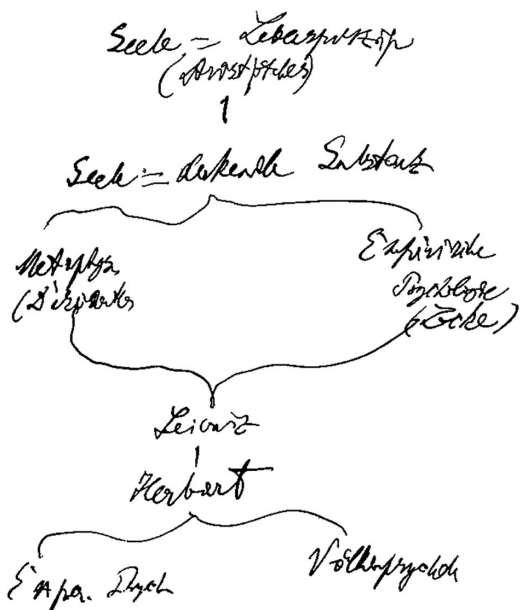 Seele = Lebensprinzip
(Aristoteles)
Seele = denkende Substanz
Metaphys.
(Descartes
Empirische
Psychologie
(Locke)
Leibniz
Herbart
Exper. Psych
Völkerpsychol